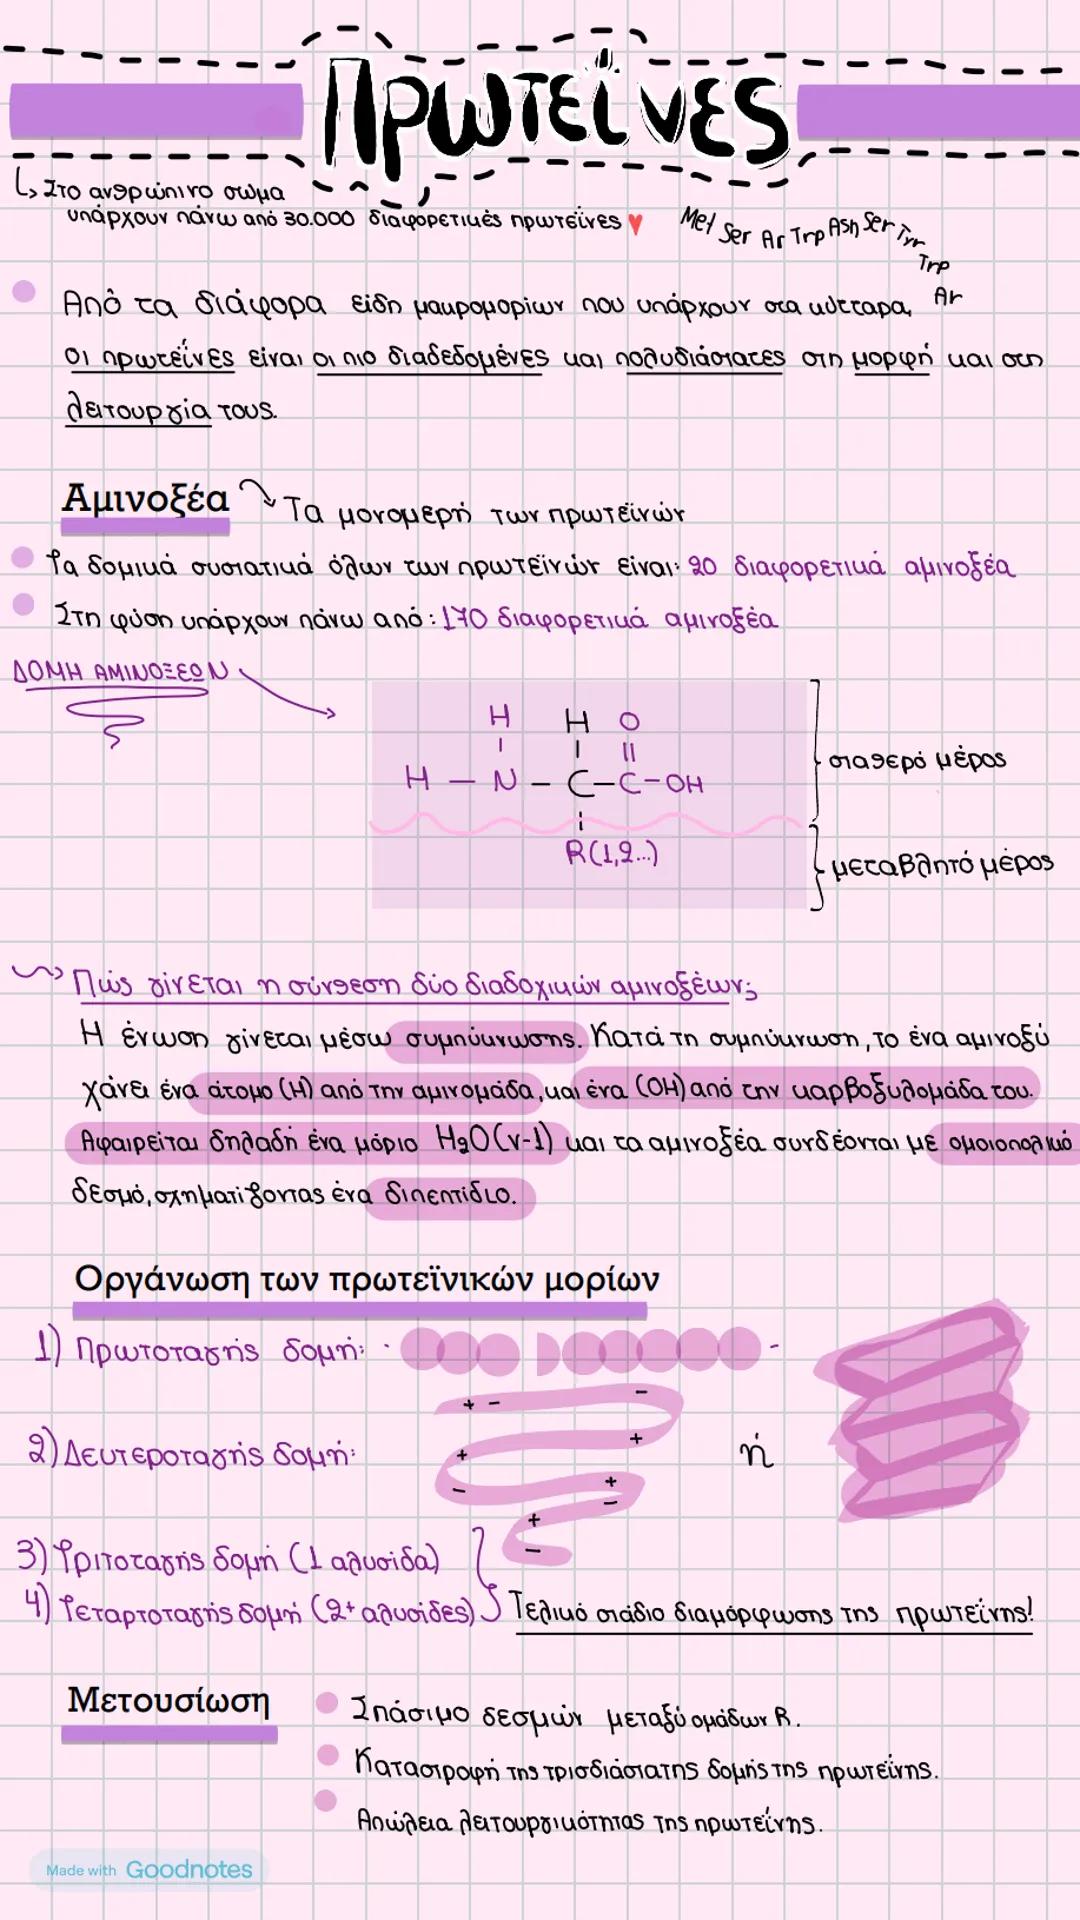 Πρωτεΐνες
Στο ανθρώπινο σώμα
υπάρχουν πάνω από 30.000 διαφορετικές πρωτεΐνες
Met Ser Ar Trp Asn Ser Tyr
Trp
Ar
Από τα διάφορα είδη μακρομορίων που υπάρχουν στα κύτταρα,
οι πρωτεΐνες είναι οι πιο διαδεδομένες και πολυδιάστατες στη μορφή και στη
λειτουργία τους.
Αμινοξέα
Τα μονομερή των πρωτεϊνών
Τα δομικά συστατικά όλων των πρωτεϊνών είναι: 20 διαφορετικά αμινοξέα
Στη φύση υπάρχουν πάνω από: 170 διαφορετικά αμινοξέα
ΔΟΜΗ ΑΜΙΝΟΞΕΩΝ
H H O
H — N — C — C - OH
R(1,2...)
σταθερό μέρος
μεταβλητό μέρος
Πώς γίνεται η σύνθεση δύο διαδοχικών αμινοξέων;
Η ένωση γίνεται μέσω συμπύκνωσης. Κατά τη συμπύκνωση, το ένα αμινοξύ
χάνει ένα άτομο (H) από την αμινομάδα, και ένα (OH) από την καρβοξυλομάδα του.
Αφαιρείται δηλαδή ένα μόριο H2O(ν-1) και τα αμινοξέα συνδέονται με ομοιοπολικό
δεσμό, σχηματίζοντας ένα διπεπτίδιο.
Οργάνωση των πρωτεϊνικών μορίων
1) Πρωτοταγής δομή:
+ - -
2) Δευτεροταγής δομή:
+ +
ή
- + -
+ -
3) Τριτοταγής δομή (1 αλυσίδα)
4) Τεταρτοταγής δομή (2+ αλυσίδες)
Τελικό στάδιο διαμόρφωσης της πρωτεΐνης!
Μετουσίωση
Σπάσιμο δεσμών μεταξύ ομάδων R.
Καταστροφή της τρισδιάστατης δομής της πρωτεΐνης.
Απώλεια λειτουργικότητας της πρωτεΐνης.
Made with Goodnotes